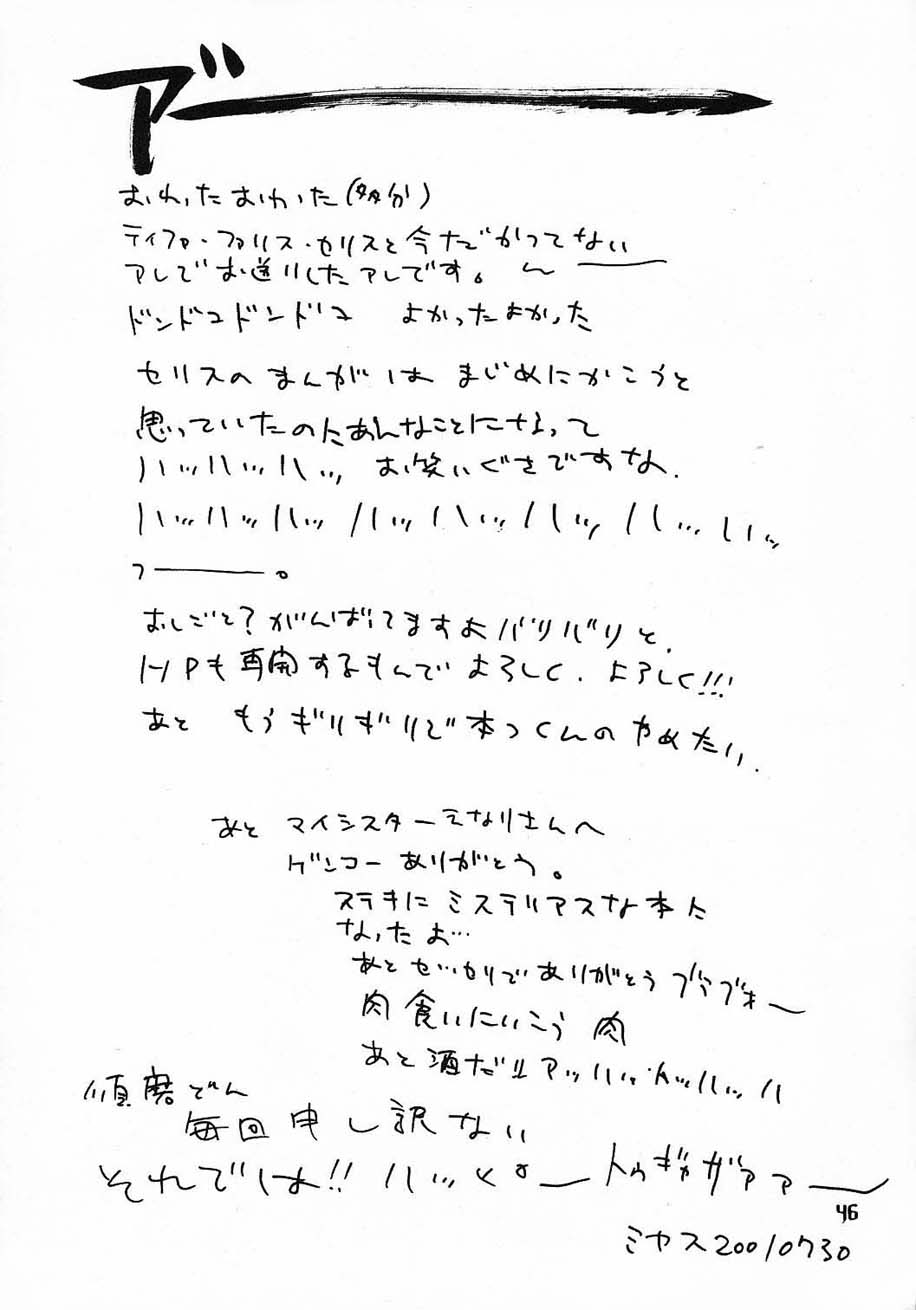 ア゛ー
おわったおわった(多分)
ティファ・ファリス・セリスと今だかつてない
アレでお送りしたアレです。
ドンドコドンドコ よかったよかった
セリスのまんがは まじめにかこうと
思っていたのにあんなことになって
ハッハッハッ お笑いぐさですな.
ハッハッハッハッハッハッハッハッ
フー。
おしごと?がんばってますよバリバリと.
HPも再開するもんで よろしく.よろしく!!!
あと もうギリギリで本つくんのやめたい.
あと マイシスターえなりさんへ
ゲンコーありがとう。
ステキにミステリアスな本に
なったよ…
あと せっせりでありがとう ブラブォー
肉食いにいこう 肉
あと酒だ!! アッハッハッハッハ
順磨どん
毎回申し訳ない
それでは!! ハッ トゥギャザァァー
46
ミヤス20010730